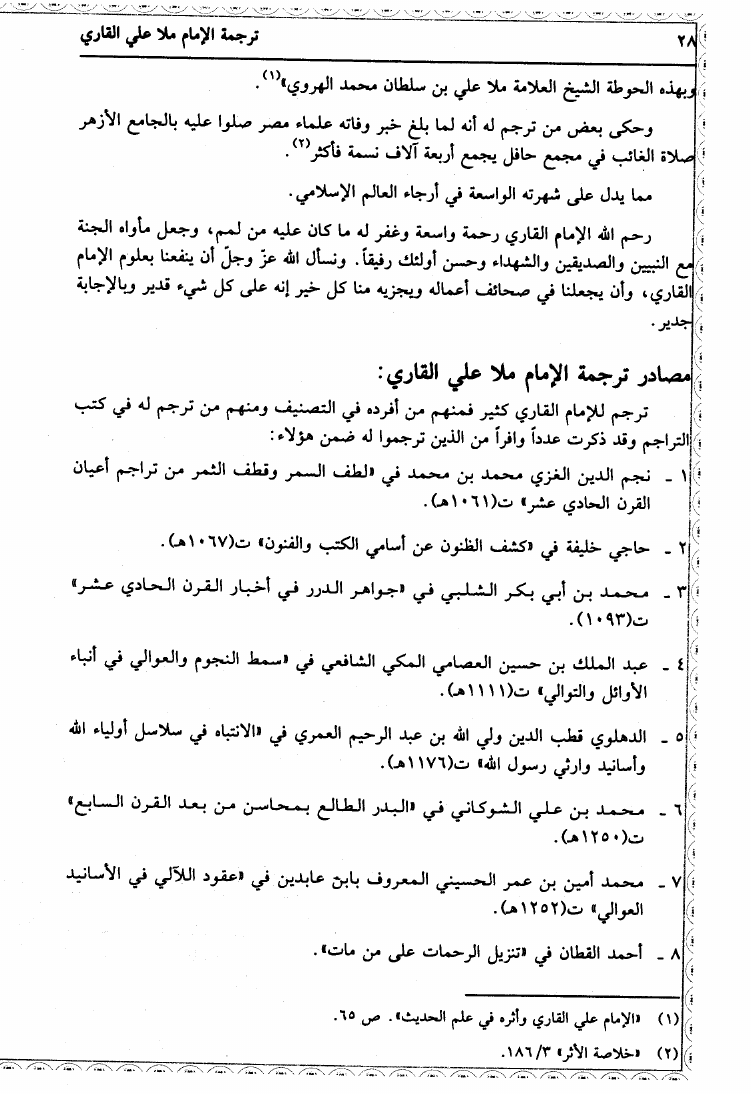 ٢٨
ترجمة الإمام ملا علي القاري
وبهذه الحوطة الشيخ العلامة ملا علي بن سلطان محمد الهروي»(١).
وحكى بعض من ترجم له أنه لما بلغ خبر وفاته علماء مصر صلوا عليه بالجامع الأزهر
صلاة الغائب في مجمع حافل يجمع أربعة آلاف نسمة فأكثر(٢).
مما يدل على شهرته الواسعة في أرجاء العالم الإسلامي.
رحم الله الإمام القاري رحمة واسعة وغفر له ما كان عليه من لمم، وجعل مأواه الجنة
مع النبيين والصديقين والشهداء وحسن أولئك رفيقاً. ونسأل الله عزّ وجلّ أن ينفعنا بعلوم الإمام
القاري، وأن يجعلنا في صحائف أعماله ويجزيه منا كل خير إنه على كل شيء قدير وبالإجابة
جدير.
مصادر ترجمة الإمام ملا علي القاري:
ترجم للإمام القاري كثير فمنهم من أفرده في التصنيف ومنهم من ترجم له في كتب
التراجم وقد ذكرت عدداً وافراً من الذين ترجموا له ضمن هؤلاء:
١ ـ نجم الدين الغزي محمد بن محمد في «لطف السمر وقطف الثمر من تراجم أعيان
القرن الحادي عشر» ت(١٠٦١هـ).
٢ ـ حاجي خليفة في «كشف الظنون عن أسامي الكتب والفنون» ت(١٠٦٧هـ).
٣ ـ محمد بن أبي بكر الشلبي في «جواهر الدرر في أخبار القرن الحادي عشر»
ت(١٠٩٣).
٤ ـ عبد الملك بن حسين العصامي المكي الشافعي في «سمط النجوم والعوالي في أنباء
الأوائل والتوالي» ت(١١١١هـ).
٥ ـ الدهلوي قطب الدين ولي الله بن عبد الرحيم العمري في «الانتباه في سلاسل أولياء الله
وأسانيد وارثي رسول الله» ت(١١٧٦هـ).
٦ ـ محمد بن علي الشوكاني في «البدر الطالع بمحاسن من بعد القرن السابع»
ت(١٢٥٠هـ).
٧ ـ محمد أمين بن عمر الحسيني المعروف بابن عابدين في «عقود اللآلي في الأسانيد
العوالي» ت(١٢٥٢هـ).
٨ ـ أحمد القطان في «تنزيل الرحمات على من مات».
(١) «الإمام علي القاري وأثره في علم الحديث». ص ٦٥.
(٢) «خلاصة الأثر» ١٨٦/٣.